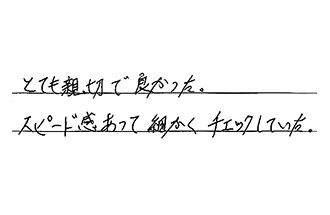 とても親切で良かった。
スピード感あって細かくチェックしていた。